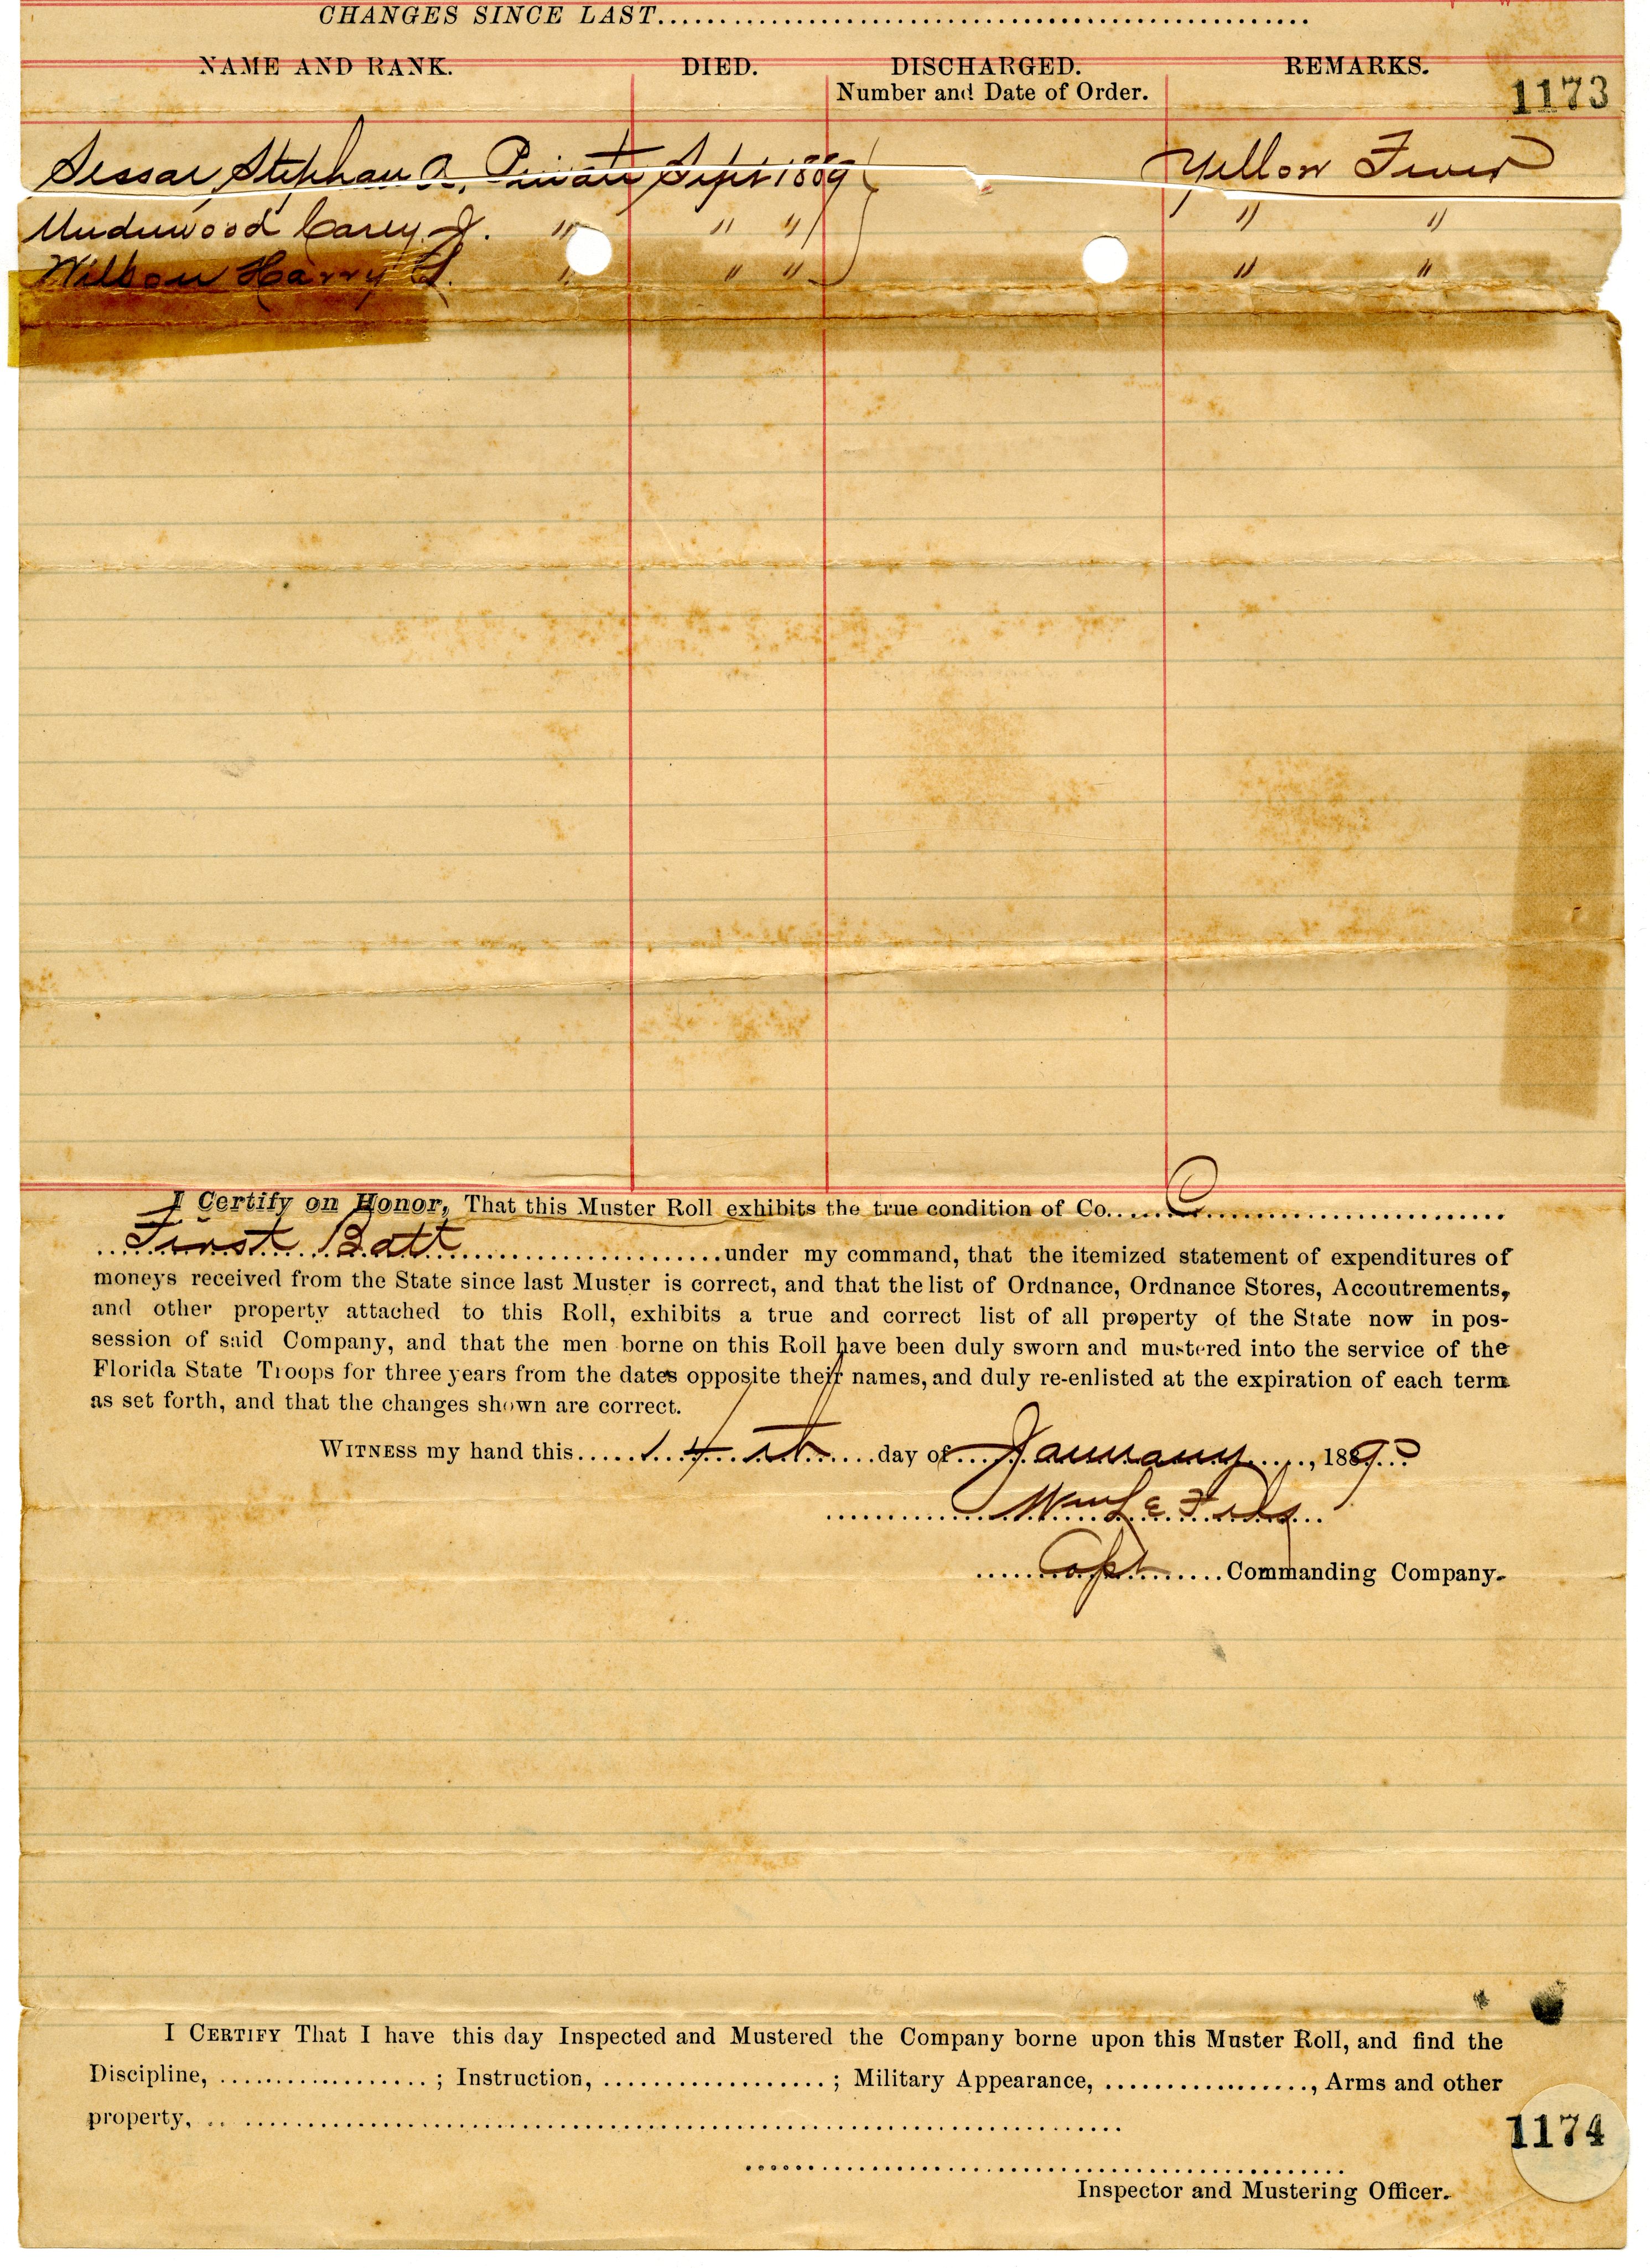 CHANGES SINCE LAST
NAME AND RANK. DIED. DISCHARGED. REMARKS.
Number and Date of Order.
1173
Sessar Stephan A, Private Sept 1889 Yellow Fever
Underwood Carey J. " " " " "
Wilson Harry " " " " "
I Certify on Honor, That this Muster Roll exhibits the true condition of Co. C
First Batt under my command, that the itemized statement of expenditures of
moneys received from the State since last Muster is correct, and that the list of Ordnance, Ordnance Stores, Accoutrements,
and other property attached to this Roll, exhibits a true and correct list of all property of the State now in pos-
session of said Company, and that the men borne on this Roll have been duly sworn and mustered into the service of the
Florida State Troops for three years from the dates opposite their names, and duly re-enlisted at the expiration of each term
as set forth, and that the changes shown are correct.
WITNESS my hand this 14th day of January, 1889
Wm
Capt Commanding Company.
I CERTIFY That I have this day Inspected and Mustered the Company borne upon this Muster Roll, and find the
Discipline, ; Instruction, ; Military Appearance, , Arms and other
property,
1174
Inspector and Mustering Officer.